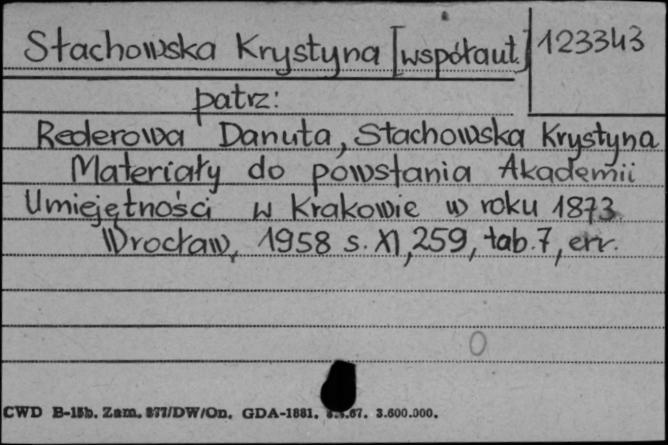 Stachowska Krystyna [współaut.] 123343
patrz:
Rederowa Danuta, Stachowska Krystyna
Materiały do powstania Akademii
Umiejętności w Krakowie w roku 1873
Wrocław, 1958 s. XI, 259, tab. 7, err.
0
CWD B-15b. Zam. 877/DW/On. GDA-1881. 3.600.000.